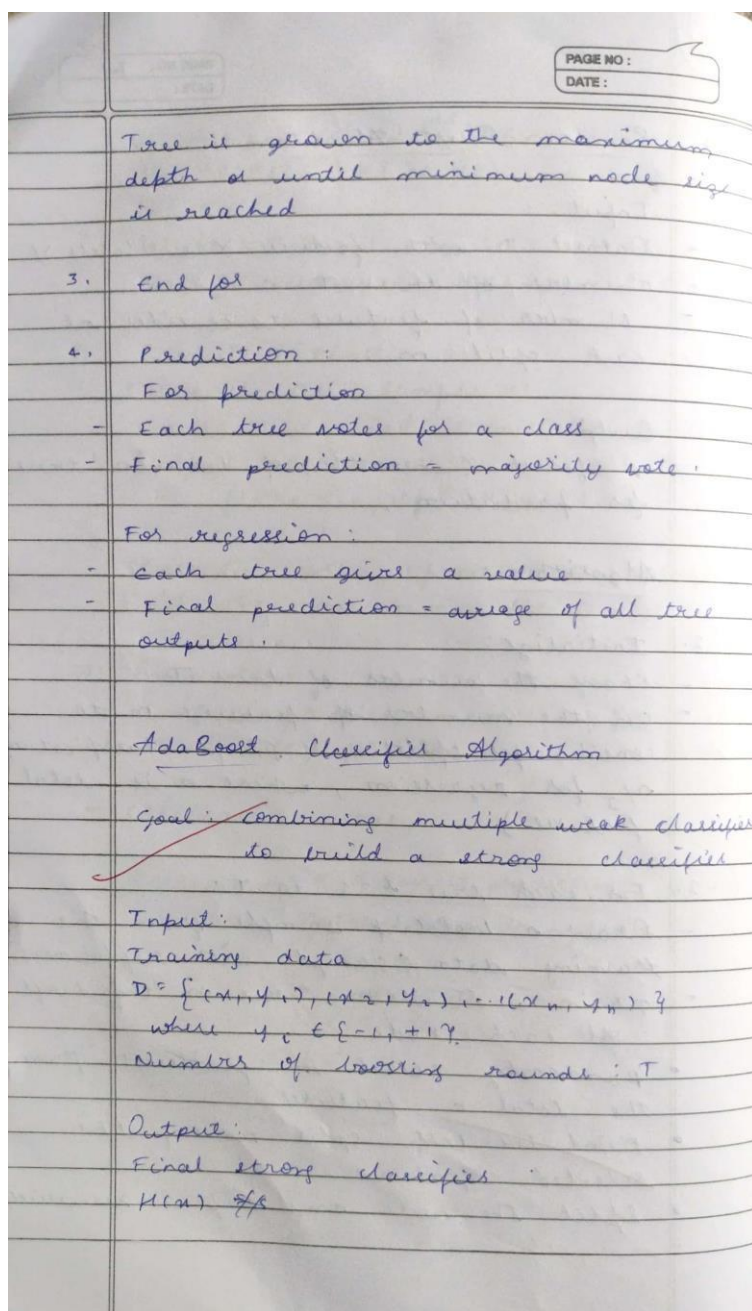 PAGE NO :
DATE :
Tree is grown to the maximum
depth or until minimum node size
is reached
3. End for
4. Prediction :
For prediction
- Each tree votes for a class
- Final prediction = majority vote.
For regression :
- Each tree gives a value
- Final prediction = average of all tree
outputs.
AdaBoost Classifier Algorithm
Goal : Combining multiple weak classifier
to build a strong classifier
Input :
Training data
D = { (x₁, y₁), (x₂, y₂), ... (xₙ, yₙ) }
where yᵢ ∈ {-1, +1}
Numbrs of boosting rounds : T
Output :
Final strong classifier
H(x)